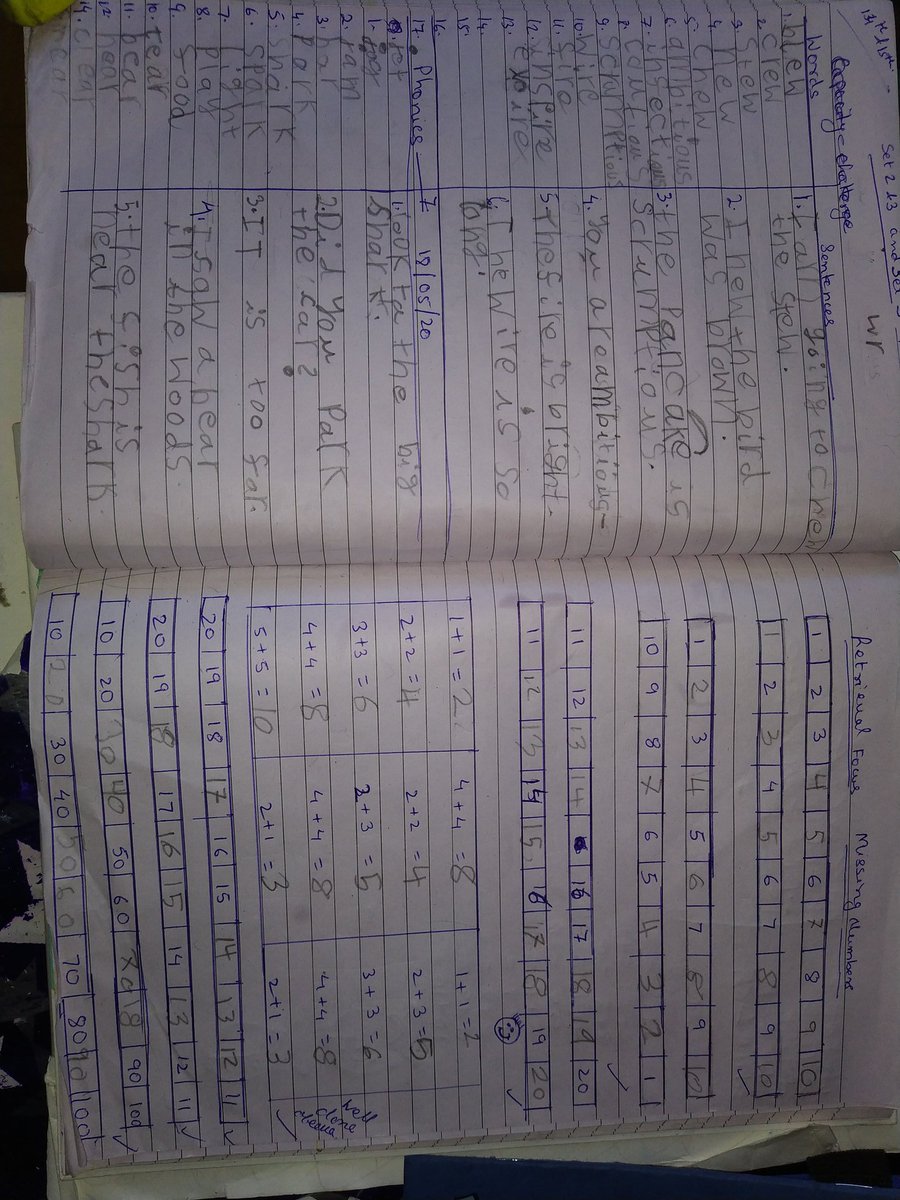 Set 2 13 and set
Capacity = Challenge
Words
Sentences
1. blew
2. crew
3. stew
4. new
5. chew
6. ambitious
7. infectious
8. cautious
9. scrumptious
10. wire
11. fire
12. inspire
13. expire
14.
15.
16.
1. I am going to chew
the stew.
2. I new the bird
was brown.
3. the pancake is
scrumptious.
4. you are ambitious
5. The fire is bright.
6. The wire is so
long.
17. Phonics - 7 18/05/20
2. ram
3. har
4. park
5. shark
6. spark
7. light
8. pay
9. food
10. tear
11. bear
12. hear
14. clear
1. look to the big
shark.
2. Did you park
the car?
3. IT is too far.
4. I saw a bear
in the woods.
5. the fish is
near the shark.
Retrieval Focus Missing Numbers
1 2 3 4 5 6 7 8 9 10
1 2 3 4 5 6 7 8 9 10
1 2 3 4 5 6 7 8 9 10
10 9 8 7 6 5 4 3 2 1
11 12 13 14 16 17 18 19 20
11 12 13 14 15 16 17 18 19 20
1+1=2 4+4=8 1+1=2
2+2=4 2+2=4 2+3=5
3+3=6 2+3=5 3+3=6
4+4=8 4+4=8 4+4=8
5+5=10 2+1=3 2+1=3
Well
done
20 19 18 17 16 15 14 13 12 11
20 19 18 17 16 15 14 13 12 11
10 20 30 40 50 60 70 8 90 100
10 20 30 40 50 60 70 80 90 100